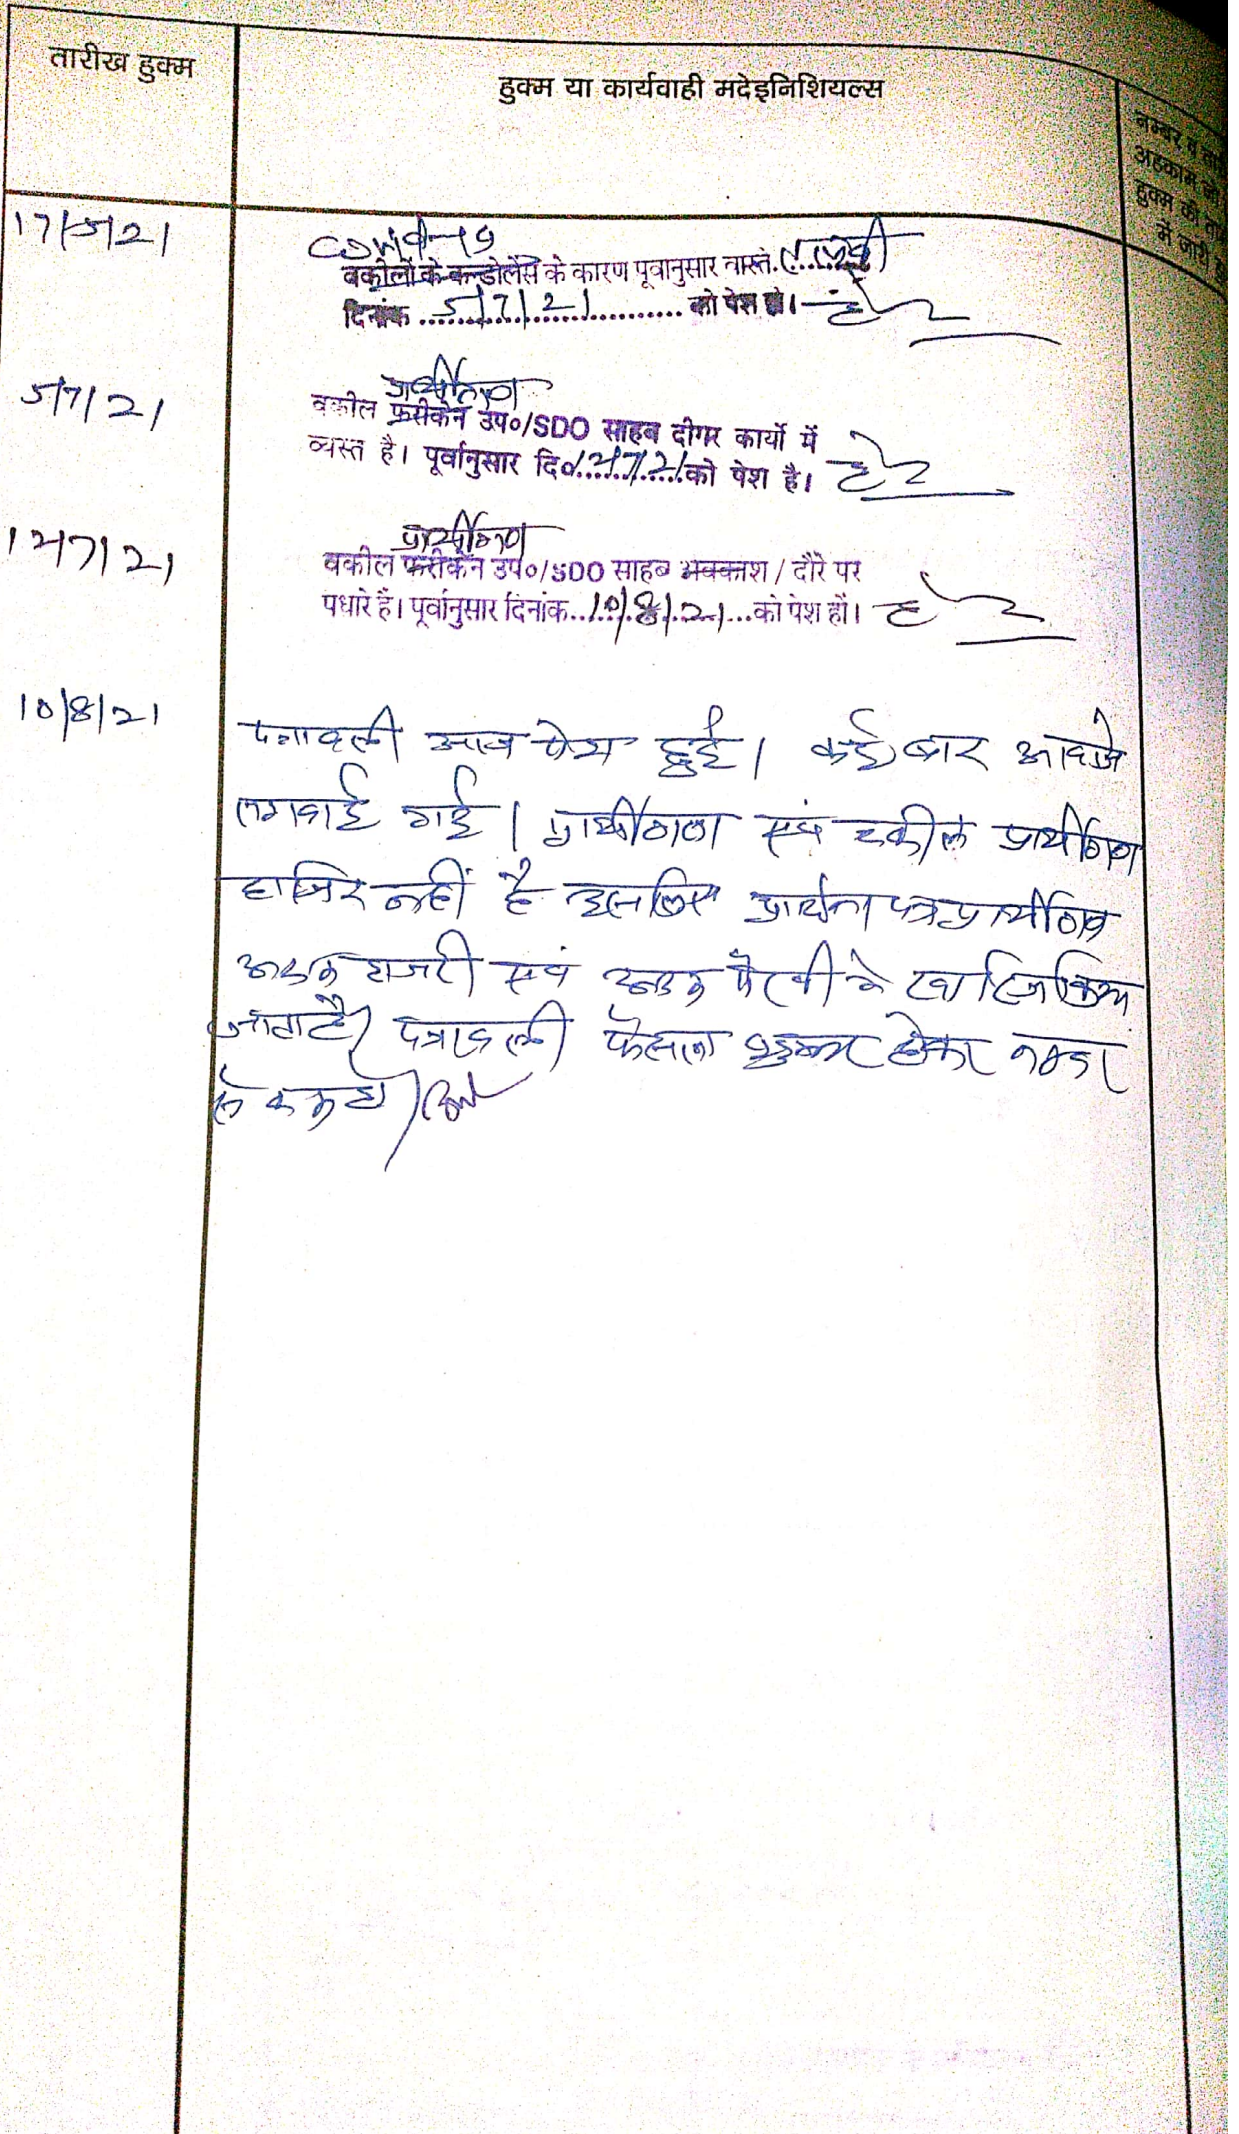 तारीख हुक्म
हुक्म या कार्यवाही मदेइनिशियल्स
नम्बर व
अहकाम
हुक्म की
में जारी
17/5/21
Covid-19
वकीलों के कन्डोलेंस के कारण पूर्वानुसार वास्ते तलबी
दिनांक 5/7/21 को पेश हो।
5/7/21
प्रार्थीगण
वकील फरीकेन उप०/SDO साहब दीगर कार्यो में
व्यस्त है। पूर्वानुसार दि० 12/7/21 को पेश है।
12/7/21
प्रार्थीगण
वकील फरीकेन उप०/SDO साहब अवकाश / दौरे पर
पधारे हैं। पूर्वानुसार दिनांक 10/8/21 को पेश हों।
10/8/21
पत्रावली आज पेश हुई। कई बार आवाजे
लगवाई गई। प्रार्थीगण एवं वकील प्रार्थीगण
हाजिर नहीं है इसलिए प्रार्थना पत्र प्रार्थीगण
अदम हाजरी एवं अदम पैरवी में खारिज किया
जाता है। पत्रावली फैसला शुमार होकर नम्बर
से कम हो।